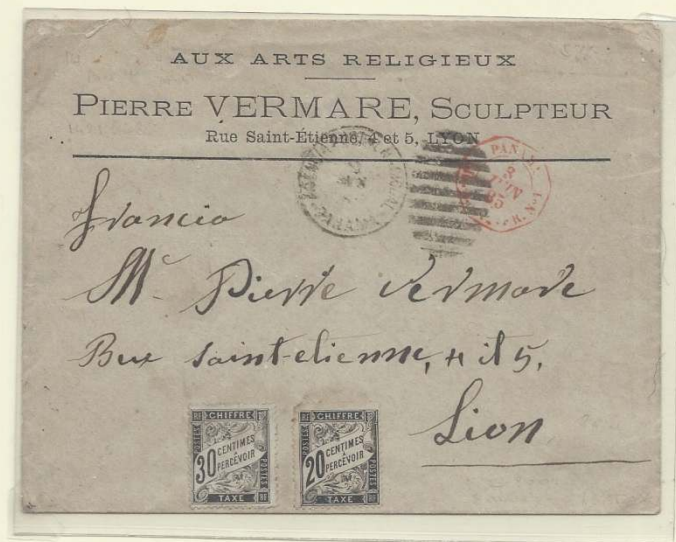 AUX ARTS RELIGIEUX
PIERRE VERMARE, SCULPTEUR
Rue Saint-Étienne, 4 et 5, LYON
PANAMA
8
JUIN
85
Francia
Mr. Pierre Vermare
Bue Saint-etienne, 4 it 5,
Lion
CHIFFRE
POSTES
30 CENTIMES
À PERCEVOIR
TAXE
CHIFFRE
POSTES
20 CENTIMES
À PERCEVOIR
TAXE